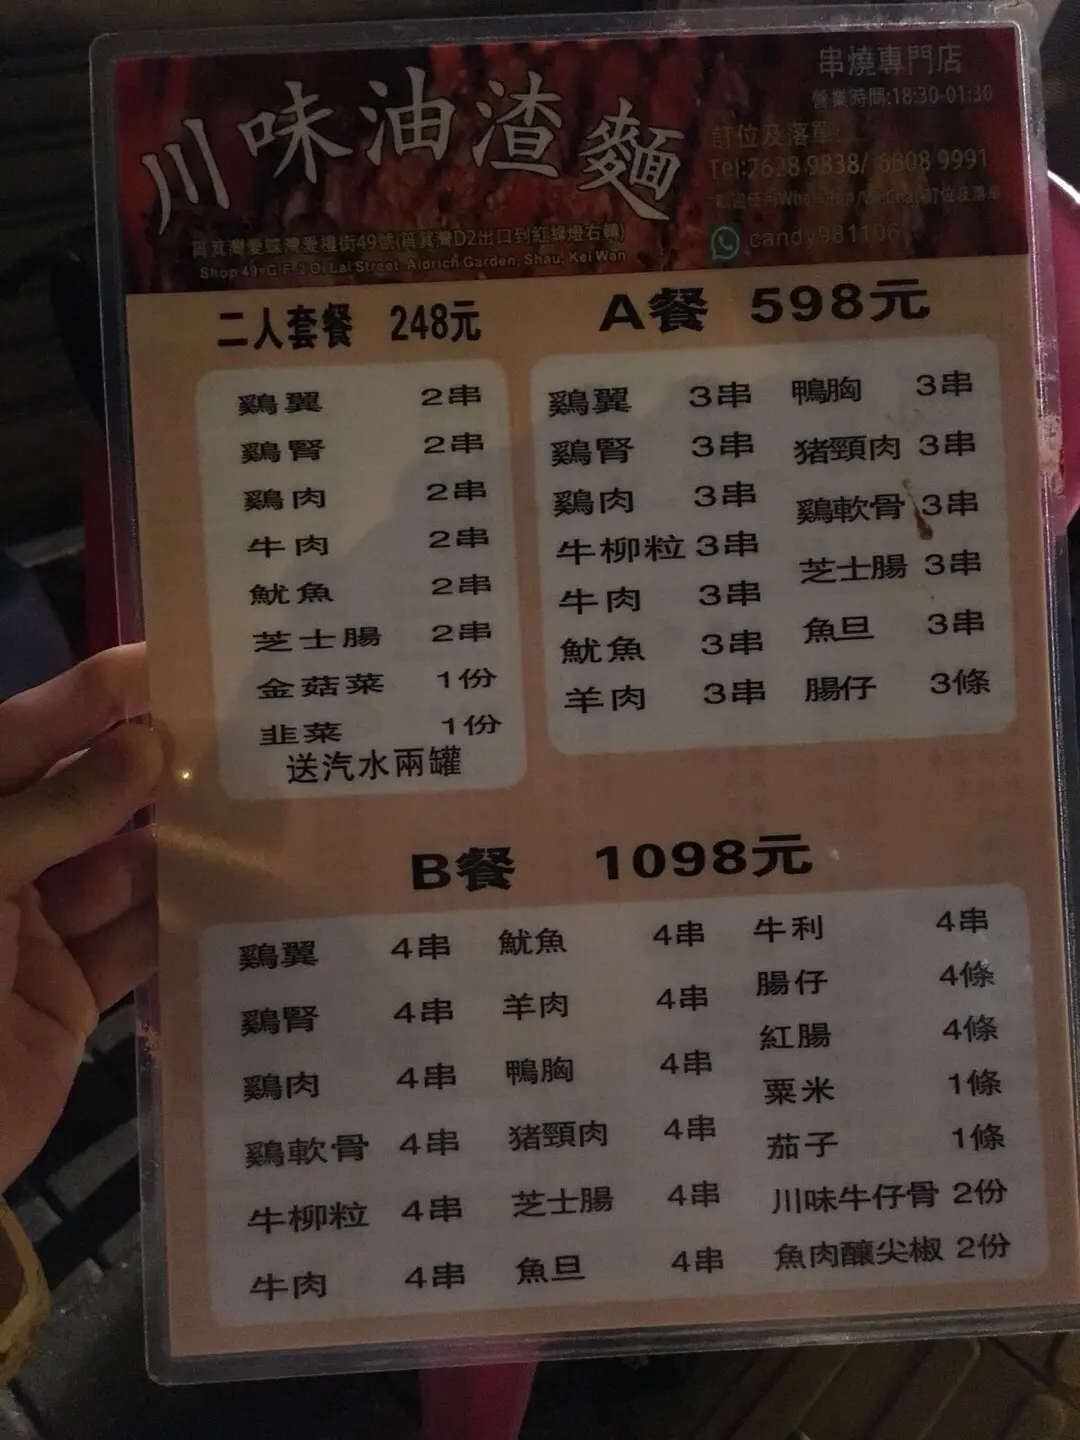 串燒專門店
營業時間:18:30-01:30
川味油渣麵
訂位及落單:
Tel:2628 9838/ 6808 9991
訂位及落單
筲箕灣愛蝶灣愛禮街49號(筲箕灣D2出口到紅綠燈右轉)
candy981106
Shop 49, G/F, 2 Oi Lai Street, Aldrich Garden, Shau, Kei Wan
二人套餐 248元
鷄翼 2串
鷄腎 2串
鷄肉 2串
牛肉 2串
魷魚 2串
芝士腸 2串
金菇菜 1份
韭菜 1份
送汽水兩罐
A餐 598元
鷄翼 3串 鴨胸 3串
鷄腎 3串 猪頸肉 3串
鷄肉 3串 鷄軟骨 3串
牛柳粒 3串 芝士腸 3串
牛肉 3串 魚旦 3串
魷魚 3串 腸仔 3條
羊肉 3串
B餐 1098元
鷄翼 4串 魷魚 4串 牛利 4串
鷄腎 4串 羊肉 4串 腸仔 4條
鷄肉 4串 鴨胸 4串 紅腸 4條
鷄軟骨 4串 猪頸肉 4串 粟米 1條
牛柳粒 4串 芝士腸 4串 茄子 1條
牛肉 4串 魚旦 4串 川味牛仔骨 2份
魚肉釀尖椒 2份